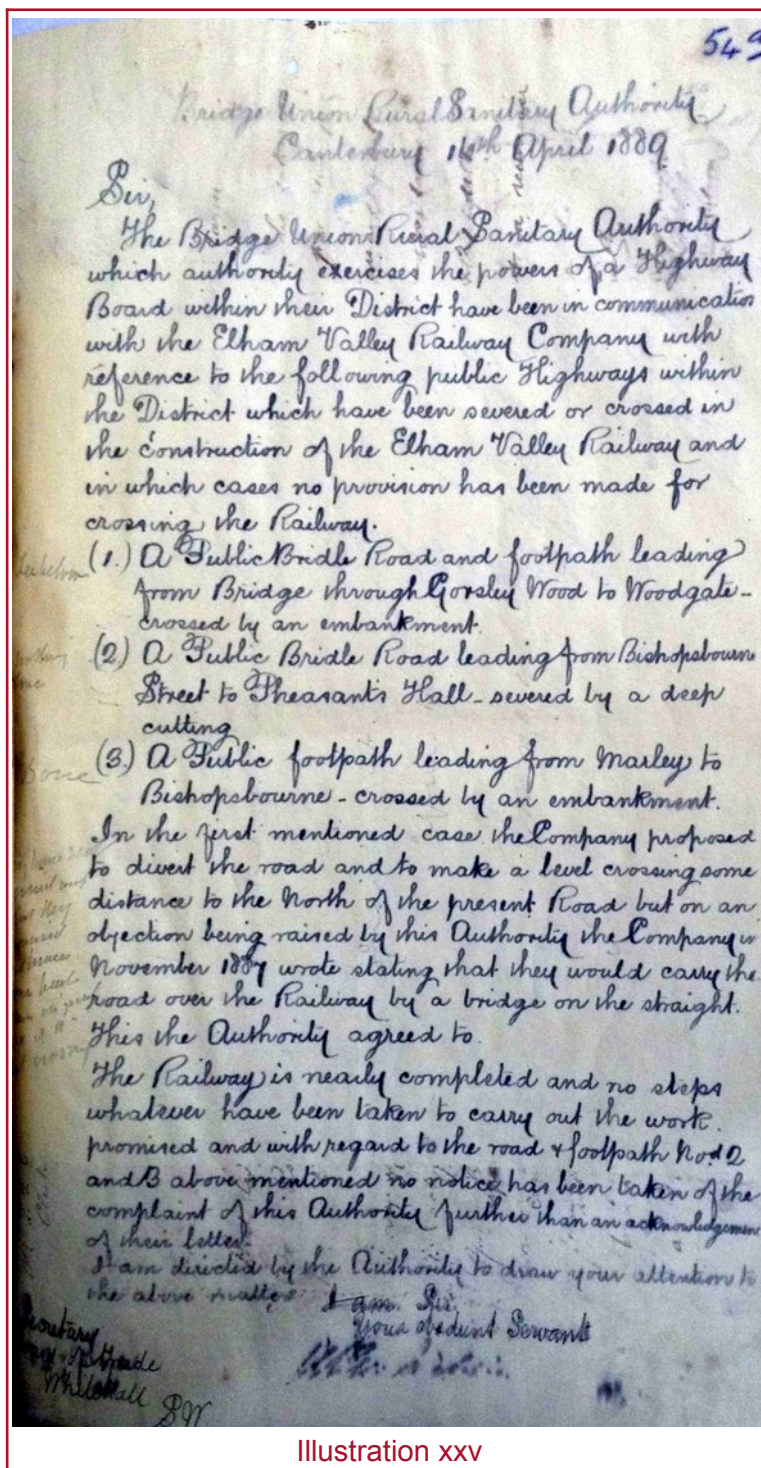 549
Bridge Union Rural Sanitary Authority
Canterbury 16th April 1889
Sir,
The Bridge Union Rural Sanitary Authority
which authority exercises the powers of a Highway
Board within their District have been in communication
with the Elham Valley Railway Company with
reference to the following public Highways within
the District which have been severed or crossed in
the construction of the Elham Valley Railway and
in which cases no provision has been made for
crossing the Railway.
(1.) A Public Bridle Road and footpath leading
from Bridge through Gorsley Wood to Woodgate -
crossed by an embankment.
(2) A Public Bridle Road leading from Bishopsbourne
Street to Pheasants Hall - severed by a deep
cutting
(3.) A Public footpath leading from Marley to
Bishopsbourne - crossed by an embankment.
In the first mentioned case the Company proposed
to divert the road and to make a level crossing some
distance to the North of the present Road but on an
objection being raised by this Authority the Company in
November 1887 wrote stating that they would carry the
road over the Railway by a bridge on the straight.
This the Authority agreed to.
The Railway is nearly completed and no steps
whatever have been taken to carry out the work
promised and with regard to the road & footpath Nos 2
and 3 above mentioned no notice has been taken of the
complaint of this Authority further than an acknowledgement
of their letter.
I am directed by the Authority to draw your attention to
the above matter I am Sir
Your obedient Servant
Secretary
Trade
Whitehall
SW
Illustration xxv